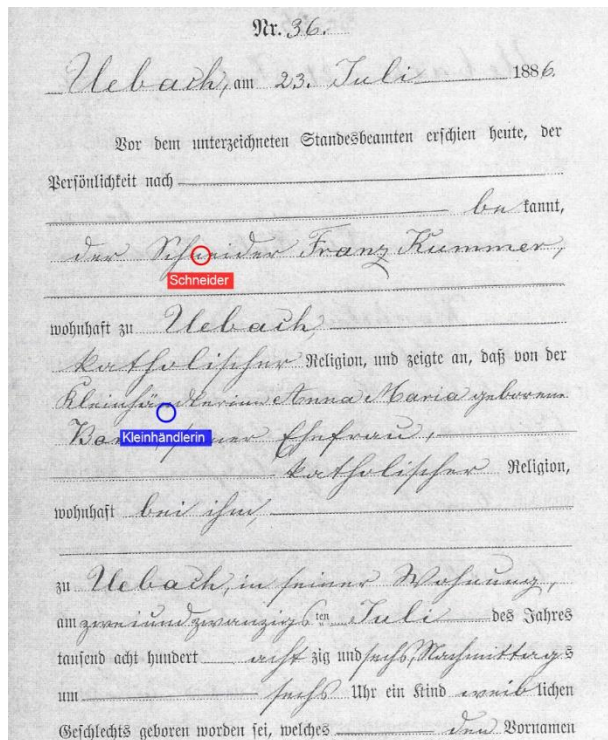 Nr. 36.
Uebach, am 23. Juli 1886.
Vor dem unterzeichneten Standesbeamten erschien heute, der
Persönlichkeit nach
be kannt,
der Schneider Franz Kummer,
Schneider
wohnhaft zu Uebach,
katholischer Religion, und zeigte an, daß von der
Kleinhändlerinn Anna Maria geborene
Kleinhändlerin
seiner Ehefrau,
katholischer Religion,
wohnhaft bei ihm,
zu Uebach, in seiner Wohnung,
am zweiundzwanzigs ten Juli des Jahres
tausend acht hundert acht zig und sechs, Nachmittags
um sechs Uhr ein Kind weib lichen
Geschlechts geboren worden sei, welches den Vornamen